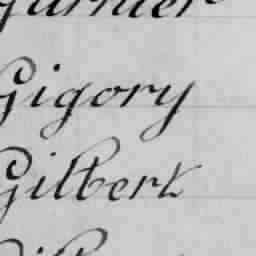 Garnier
Gigory
Gilbert